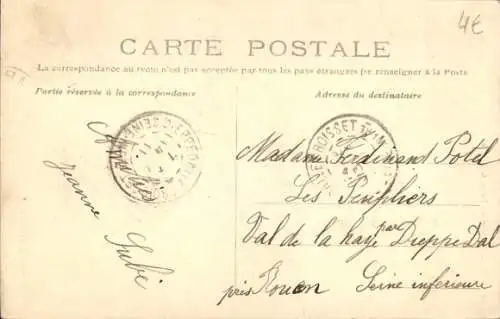 4€
CARTE POSTALE
La correspondance au recto n'est pas acceptée par tous les pays étrangers (se renseigner à la Poste
Partie réservée à la correspondance
Adresse du destinataire
Jeanne
Madame Ferdinand Potel
Les Peupliers
Val de la haye par Dieppe Dal
près Rouen Seine inférieure